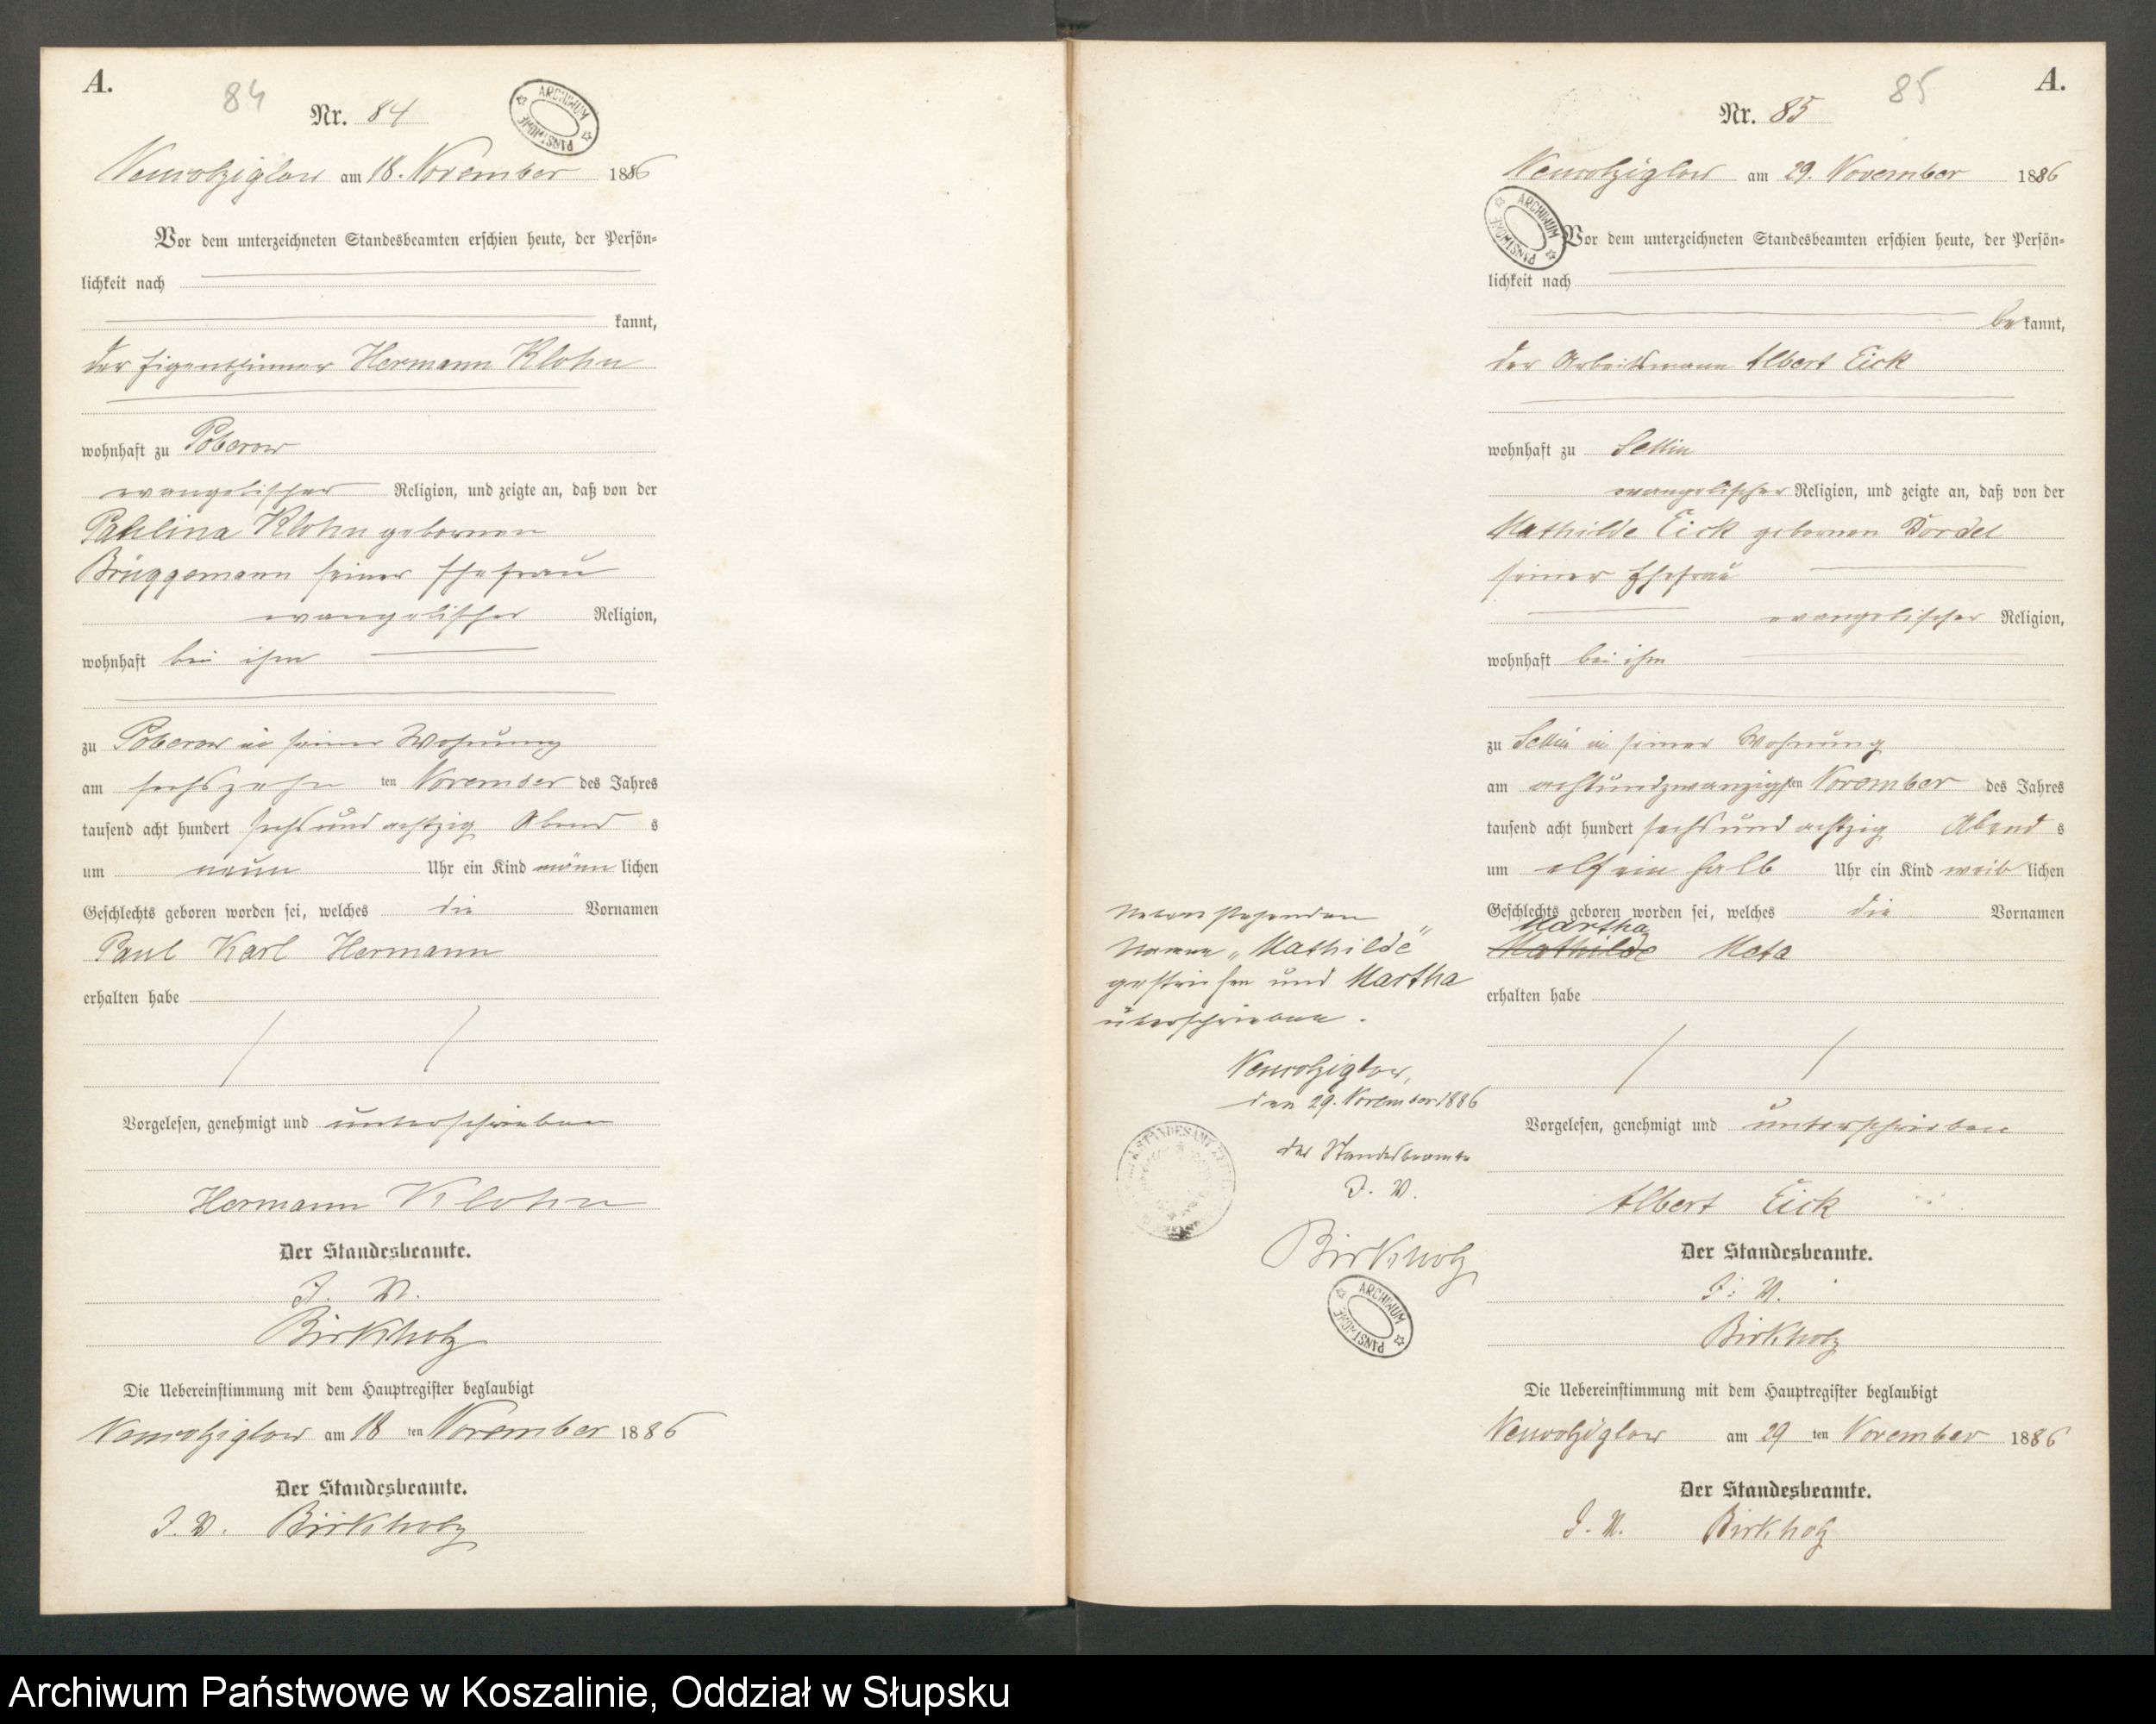 A.
84
Nr. 84
ARCHIWUM PAŃSTWOWE
Neuvolziglow am 18. November 1886
Vor dem unterzeichneten Standesbeamten erschien heute, der Persön-
lichkeit nach
kannt,
der Eigenthümer Hermann Klohn
wohnhaft zu Poberow
evangelischer Religion, und zeigte an, daß von der
Paulina Klohn gebornen
Brüggemann seiner Ehefrau
evangelischer Religion,
wohnhaft bei ihm
zu Poberow in seiner Wohnung
am sechszehn ten November des Jahres
tausend acht hundert sechs und achtzig Abend s
um neun Uhr ein Kind männ lichen
Geschlechts geboren worden sei, welches die Vornamen
Paul Karl Hermann
erhalten habe
Vorgelesen, genehmigt und unterschrieben
Hermann Klohn
Der Standesbeamte.
J. V.
Birkholz
Die Uebereinstimmung mit dem Hauptregister beglaubigt
Neuvolziglow am 18 ten November 1886
Der Standesbeamte.
J. V. Birkholz
A.
85
Nr. 85
Neuvolziglow am 29. November 1886
ARCHIWUM PAŃSTWOWE
Vor dem unterzeichneten Standesbeamten erschien heute, der Persön-
lichkeit nach
be kannt,
der Arbeitsmann Albert Eick
wohnhaft zu Sellin
evangelischer Religion, und zeigte an, daß von der
Mathilde Eick gebornen Dordel
seiner Ehefrau
evangelischer Religion,
wohnhaft bei ihm
zu Sellin in seiner Wohnung
am achtundzwanzigsten November des Jahres
tausend acht hundert sechs und achtzig Abend s
um elf ein halb Uhr ein Kind weib lichen
Geschlechts geboren worden sei, welches die Vornamen
Martha
Mathilde Meta
erhalten habe
Vorgelesen, genehmigt und unterschrieben
Albert Eick
Der Standesbeamte.
J. V.
Birkholz
Die Uebereinstimmung mit dem Hauptregister beglaubigt
Neuvolziglow am 29 ten November 1886
Der Standesbeamte.
J. V. Birkholz
Nebenstehenden
Namen „Mathilde“
gestrichen und Martha
überschrieben.
Neuvolziglow,
den 29. November 1886
der Standesbeamte
J. V.
Birkholz
ARCHIWUM PAŃSTWOWE
Archiwum Państwowe w Koszalinie, Oddział w Słupsku